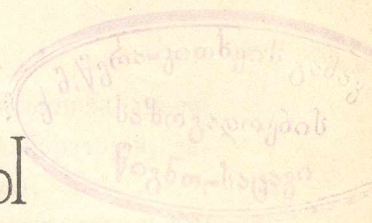 ქ. შ. წერა-კითხვის გამავ
საზოგადოების
წიგნთ-საცავი
ს